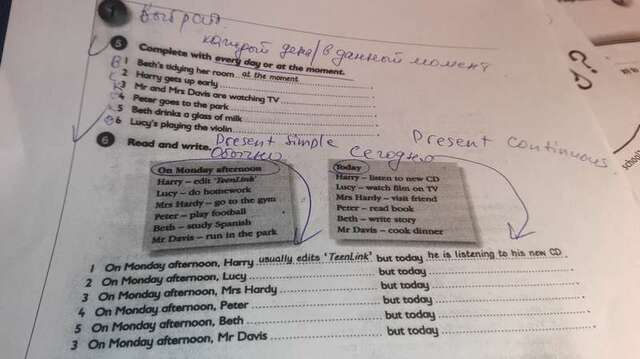 Выбрать.
каждый день/в данный момент
5 Complete with every day or at the moment.
1 Beth's tidying her room at the moment
2 Harry gets up early
3 Mr and Mrs Davis are watching TV
4 Peter goes to the park
5 Beth drinks a glass of milk
6 Lucy's playing the violin
6 Read and write.
Present Simple
Обычно
Сегодня
Present continuous
On Monday afternoon
Harry – edit 'TeenLink'
Lucy – do homework
Mrs Hardy – go to the gym
Peter – play football
Beth – study Spanish
Mr Davis – run in the park
Today
Harry – listen to new CD
Lucy – watch film on TV
Mrs Hardy – visit friend
Peter – read book
Beth – write story
Mr Davis – cook dinner
1 On Monday afternoon, Harry usually edits 'TeenLink' but today he is listening to his new CD.
2 On Monday afternoon, Lucy but today
3 On Monday afternoon, Mrs Hardy but today
4 On Monday afternoon, Peter but today
5 On Monday afternoon, Beth but today
3 On Monday afternoon, Mr Davis but today